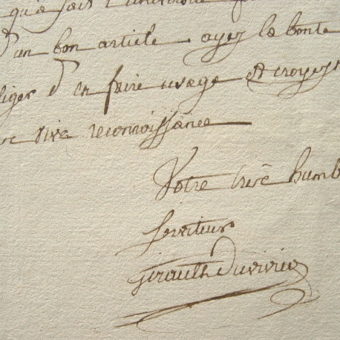 qu'a fait l'
d'un bon article ayez la bonté
liger d'en faire usage & croyez
vive reconnoissance
Votre très humb
serviteur
Girault Duvivier